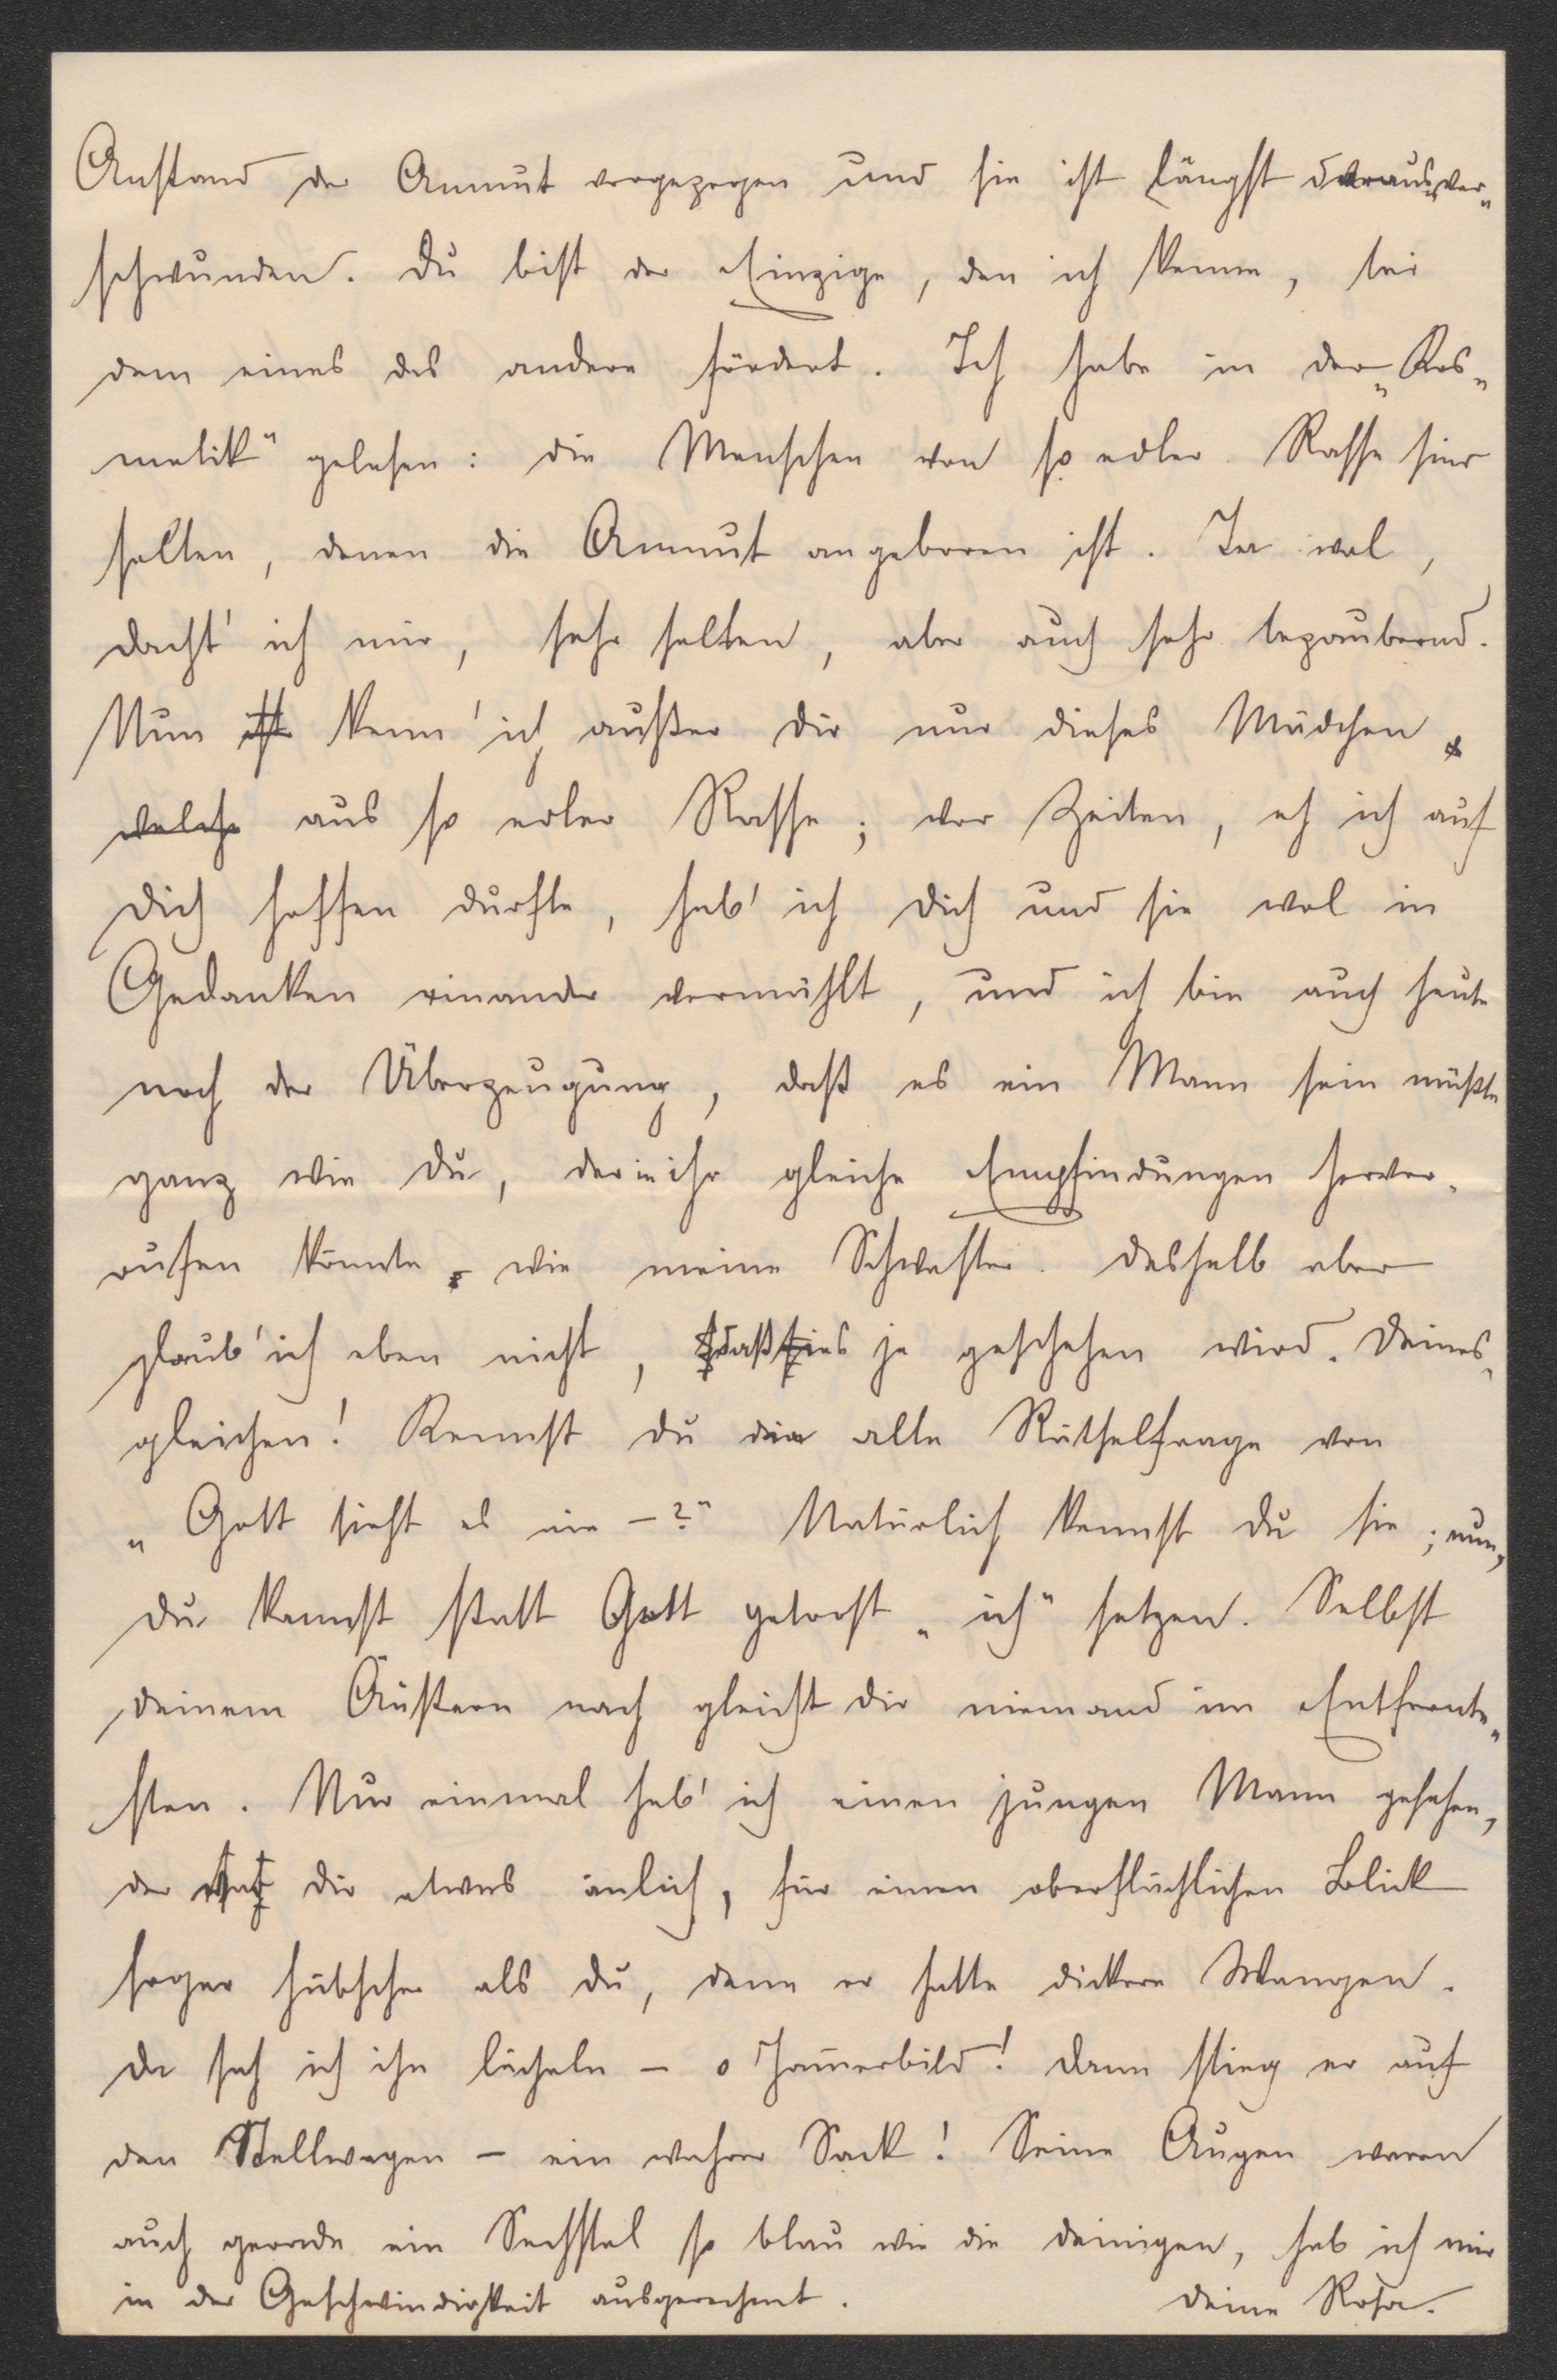 Anstand der Anmut vorgezogen und sie ist längst daraus ver„
schwunden. Du bist der Einzige, den ich kenne, bei
dem eines das andere fördert. Ich habe in der „Kos„
metik“ gelesen: die Menschen von so edler Rasse sind
selten, denen die Anmut angeboren ist. Ja wol,
dacht' ich mir, sehr selten, aber auch sehr bezaubernd.
Nun ist kenn' ich außer dir nur dieses Mädchen,
welche aus so edler Rasse; vor Zeiten, eh ich auf
dich hoffen durfte, hab' ich dich und sie wol in
Gedanken einander vermählt, und ich bin auch heute
noch der Überzeugung, daß es ein Mann sein müßte
ganz wie du, der in ihr gleiche Empfindungen hervor„
rufen könnte, wie meine Schwester. Deshalb aber
glaub' ich eben nicht, daß es je geschehen wird. Deines„
gleichen! Kennst du die alte Räthselfrage von
„Gott sieht es nie –?“ Natürlich kennst du sie; nun,
du kannst statt Gott getrost „ich“ setzen. Selbst
deinem Äußern nach gleicht dir niemand im Entfernte„
sten. Nur einmal hab' ich einen jungen Mann gesehen,
der sah dir etwas änlich, für einen oberflächlichen Blick
sogar hübscher als du, denn er hatte dickere Wangen.
Da sah ich ihn lächeln – o Jam̅erbild! Dann stieg er auf
den Stellwagen – ein wahrer Sack! Seine Augen waren
auch gerade ein Sechstel so blau wie die deinigen, hab ich mir
in der Geschwindigkeit ausgerechnet. Deine Rosa.